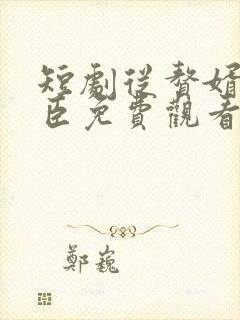 短劇從贅婿
臣免費觀看
鄭巍